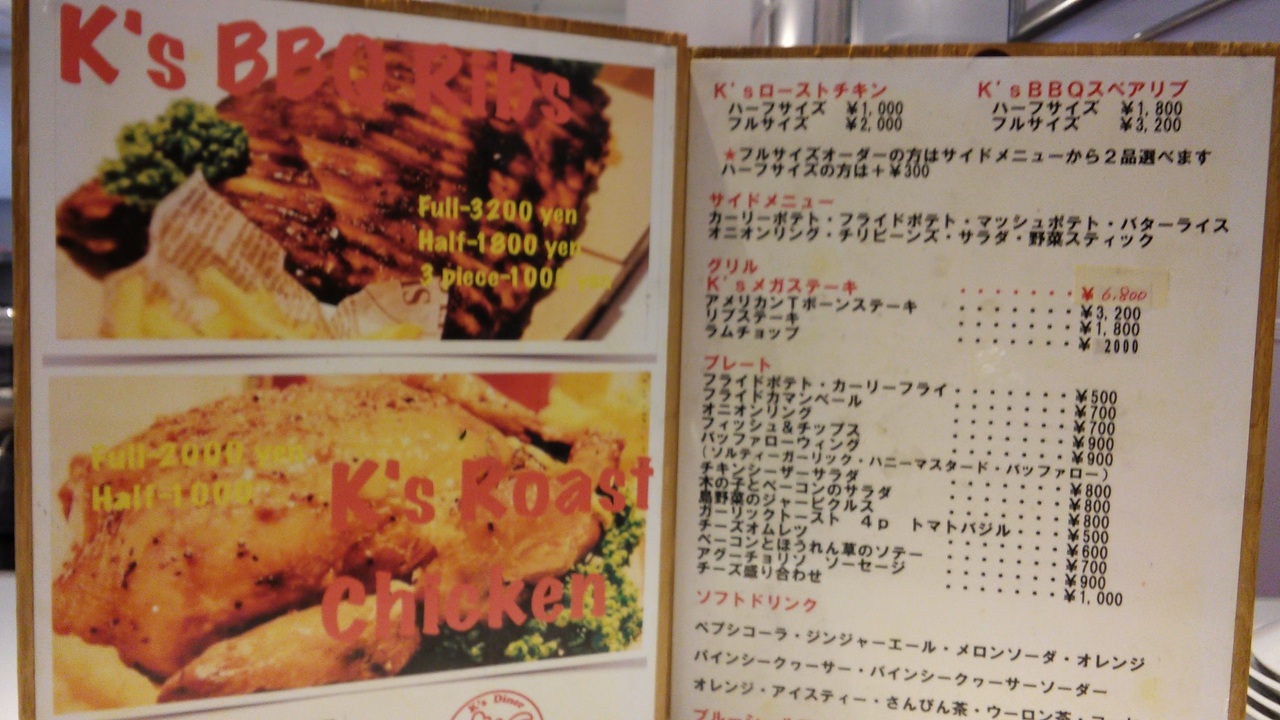 K's BBQ Ribs
Full-3200 yen
Half-1800 yen
3 piece-1000 yen
Full-2000 yen
Half-1000
K's Roast
Chicken
K's Diner
K'sローストチキン
ハーフサイズ ¥1,000
フルサイズ ¥2,000
K'sBBQスペアリブ
ハーフサイズ ¥1,800
フルサイズ ¥3,200
★フルサイズオーダーの方はサイドメニューから2品選べます
ハーフサイズの方は+¥300
サイドメニュー
カーリーポテト・フライドポテト・マッシュポテト・バターライス
オニオンリング・チリビーンズ・サラダ・野菜スティック
グリル
K'sメガステーキ ・・・・・・・¥6,800
アメリカンTボーンステーキ ・・・・・・・¥3,200
リブステーキ ・・・・・・・¥1,800
ラムチョップ ・・・・・・・¥2000
プレート
フライドポテト・カーリーフライ・・・・・・・¥500
フライドカマンベール ・・・・・・・¥700
オニオンリング ・・・・・・・¥700
フィッシュ&チップス ・・・・・・・¥900
バッファローウィング ・・・・・・・¥900
(ソルティーガーリック・ハニーマスタード・バッファロー)
チキンシーザーサラダ ・・・・・・・¥800
木の子とベーコンのサラダ ・・・・・・・¥800
島野菜のジャーピクルス ・・・・・・・¥800
ガーリックトースト 4p トマトバジル・・・・¥500
チーズオムレツ ・・・・・・・¥600
ベーコンとほうれん草のソテー ・・・・・・・¥700
アグーチョリソ ソーセージ ・・・・・・・¥900
チーズ盛り合わせ ・・・・・・・¥1,000
ソフトドリンク
ペプシコーラ・ジンジャーエール・メロンソーダ・オレンジ
パインシークヮーサー・パインシークヮーサーソーダー
オレンジ・アイスティー・さんぴん茶・ウーロン茶・コー